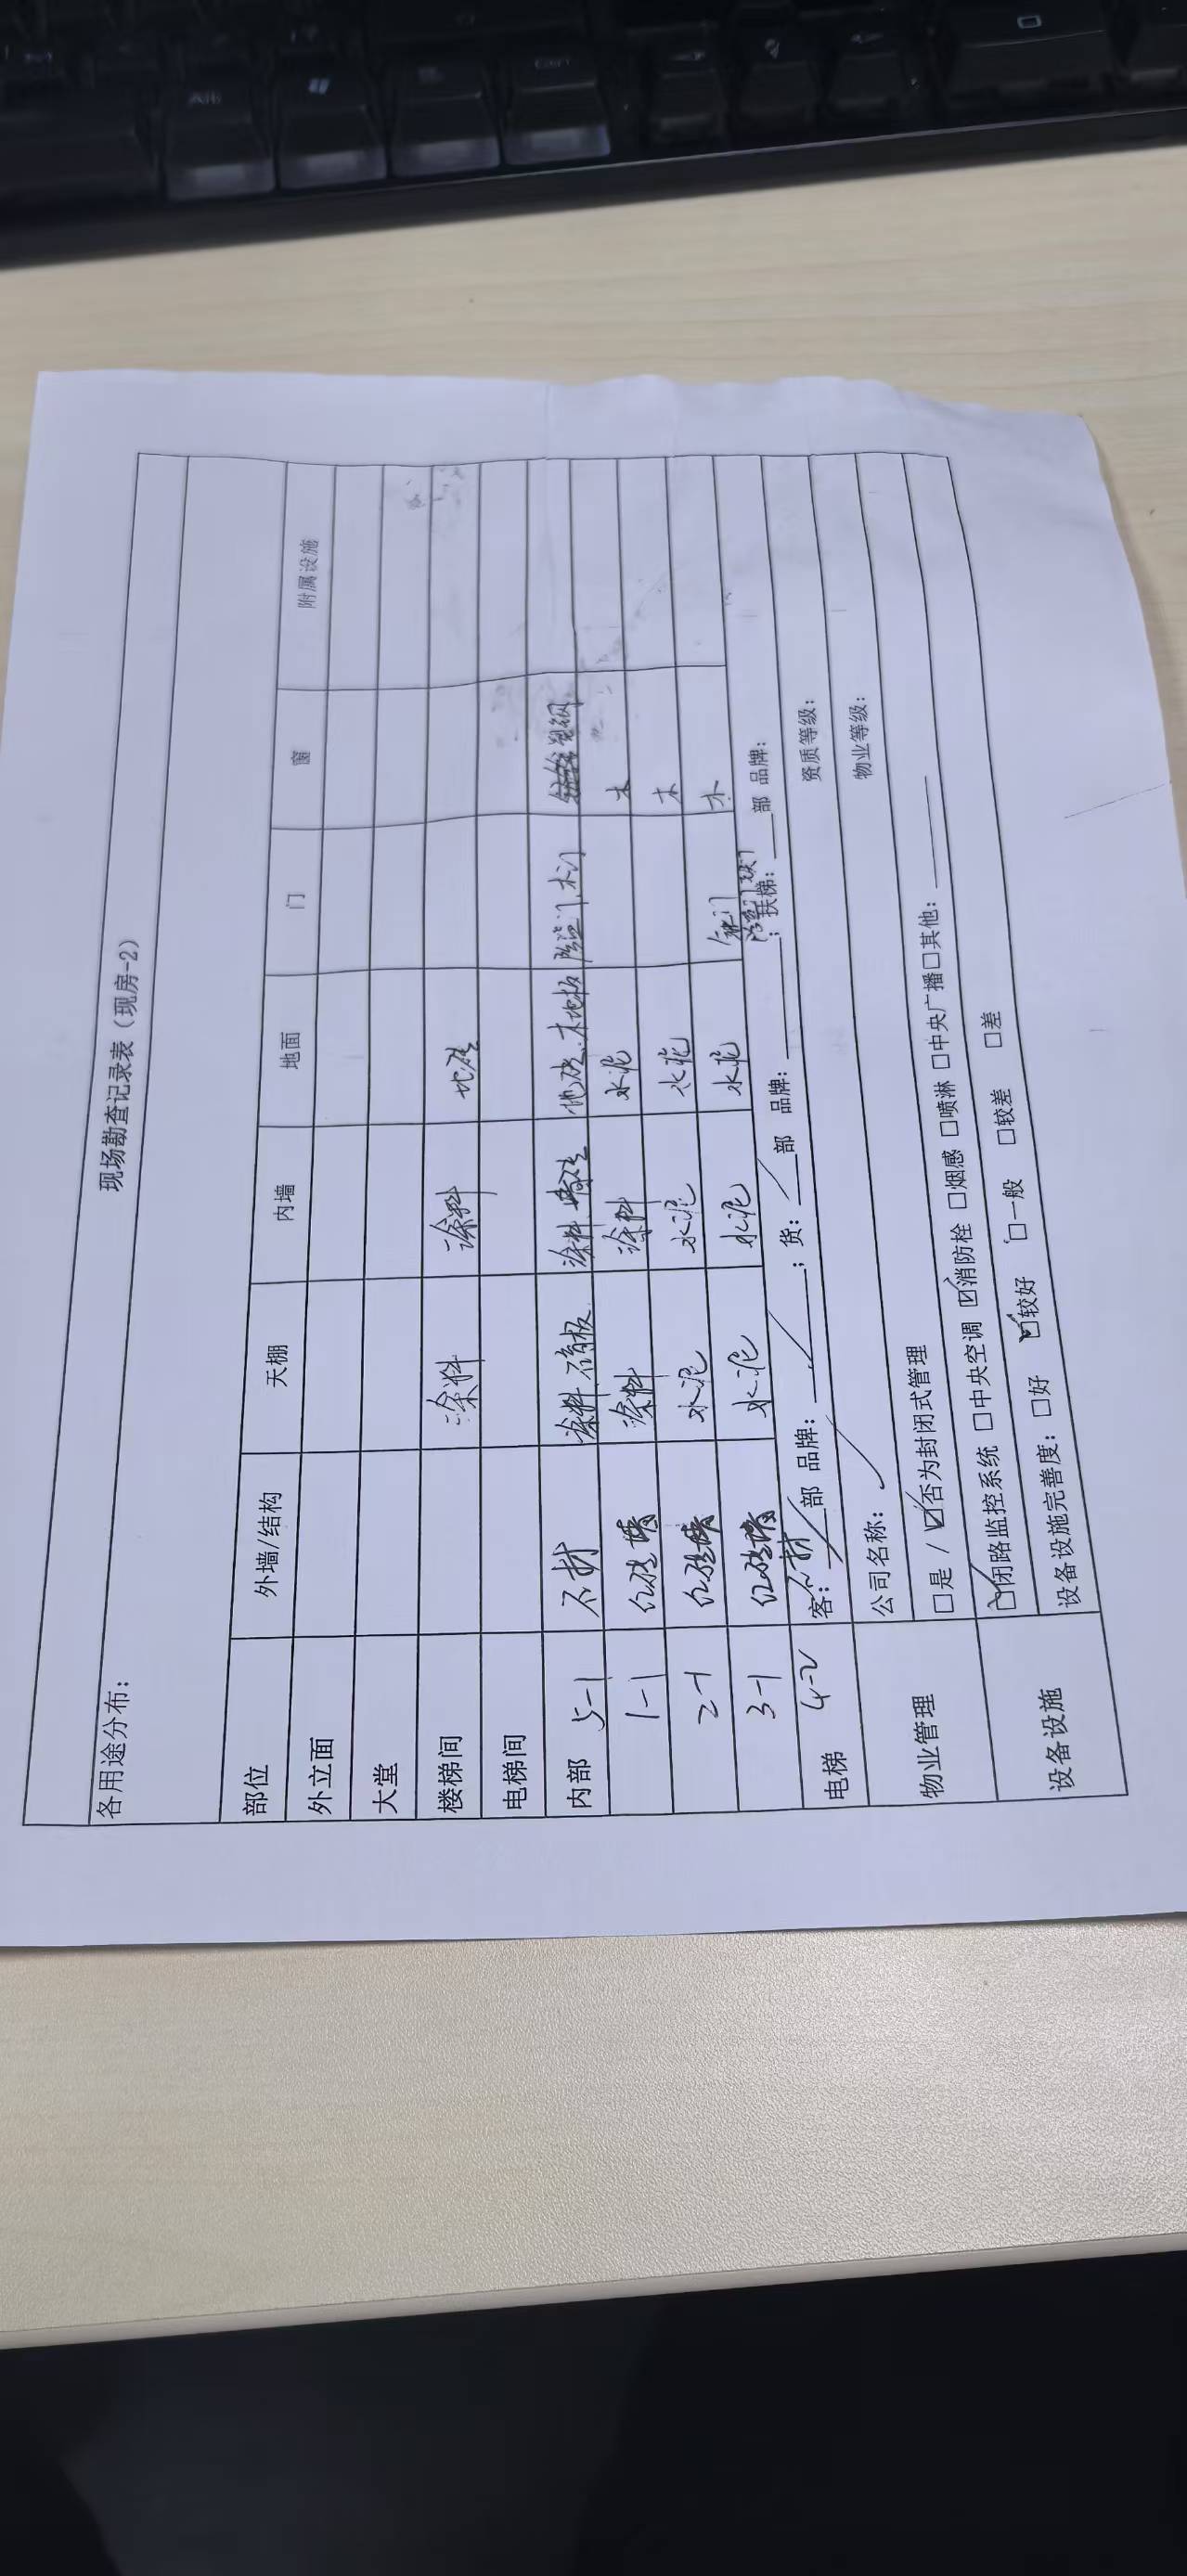 现场勘查记录表（现房-2）
各用途分布：
部位 外墙/结构 天棚 内墙 地面 门 窗 附属设施
外立面
大堂
楼梯间 涂料 涂料 地砖
电梯间
内部 5-1 石材 涂料、硝板 涂料、墙砖 地砖、木地板 防盗门、木门 塑钢
1-1 红砖墙 涂料 涂料 水泥 木
2-1 红砖墙 水泥 水泥 水泥 木
3-1 红砖墙 水泥 水泥 水泥 木
电梯 4-2 客：部 品牌：；货：部 品牌：；扶梯：部 品牌：
物业管理 公司名称： 资质等级：
□是 / ☑否为封闭式管理 物业等级：
设备设施 ☑闭路监控系统 □中央空调 ☑消防栓 □烟感 □喷淋 □中央广播 □其他：
设备设施完善度： □好 ☑较好 □一般 □较差 □差